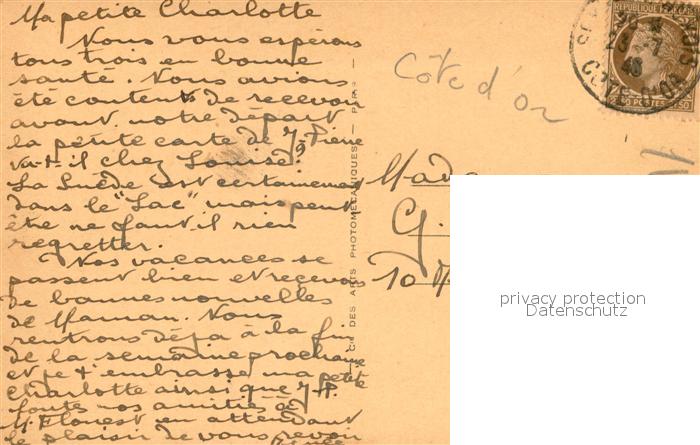 Ma petite Charlotte
Nous vous espérons
tous trois en bonne
santé. Nous avions
été contents de recevoir
avant notre départ
la petite carte de J. Pierre
va-t-il chez Louise?
La Suède est certainement
dans le "Lac" mais peut
être ne faut il rien
regretter.
Nos vacances se
passent bien et recevons
de bonnes nouvelles
de Maman. Nous
rentrons déjà à la fin
de la semaine prochaine
et je t'embrasse ma petite
Charlotte ainsi que J.P.
toutes nos amitiés à
M. Florest en attendant
le plaisir de vous revoir
CIE DES ARTS PHOTOMECANIQUES — PARIS —
Côte d'Or
REPUBLIQUE FRANCAISE
POSTES 1F50
Mada
G.
10
privacy protection
Datenschutz